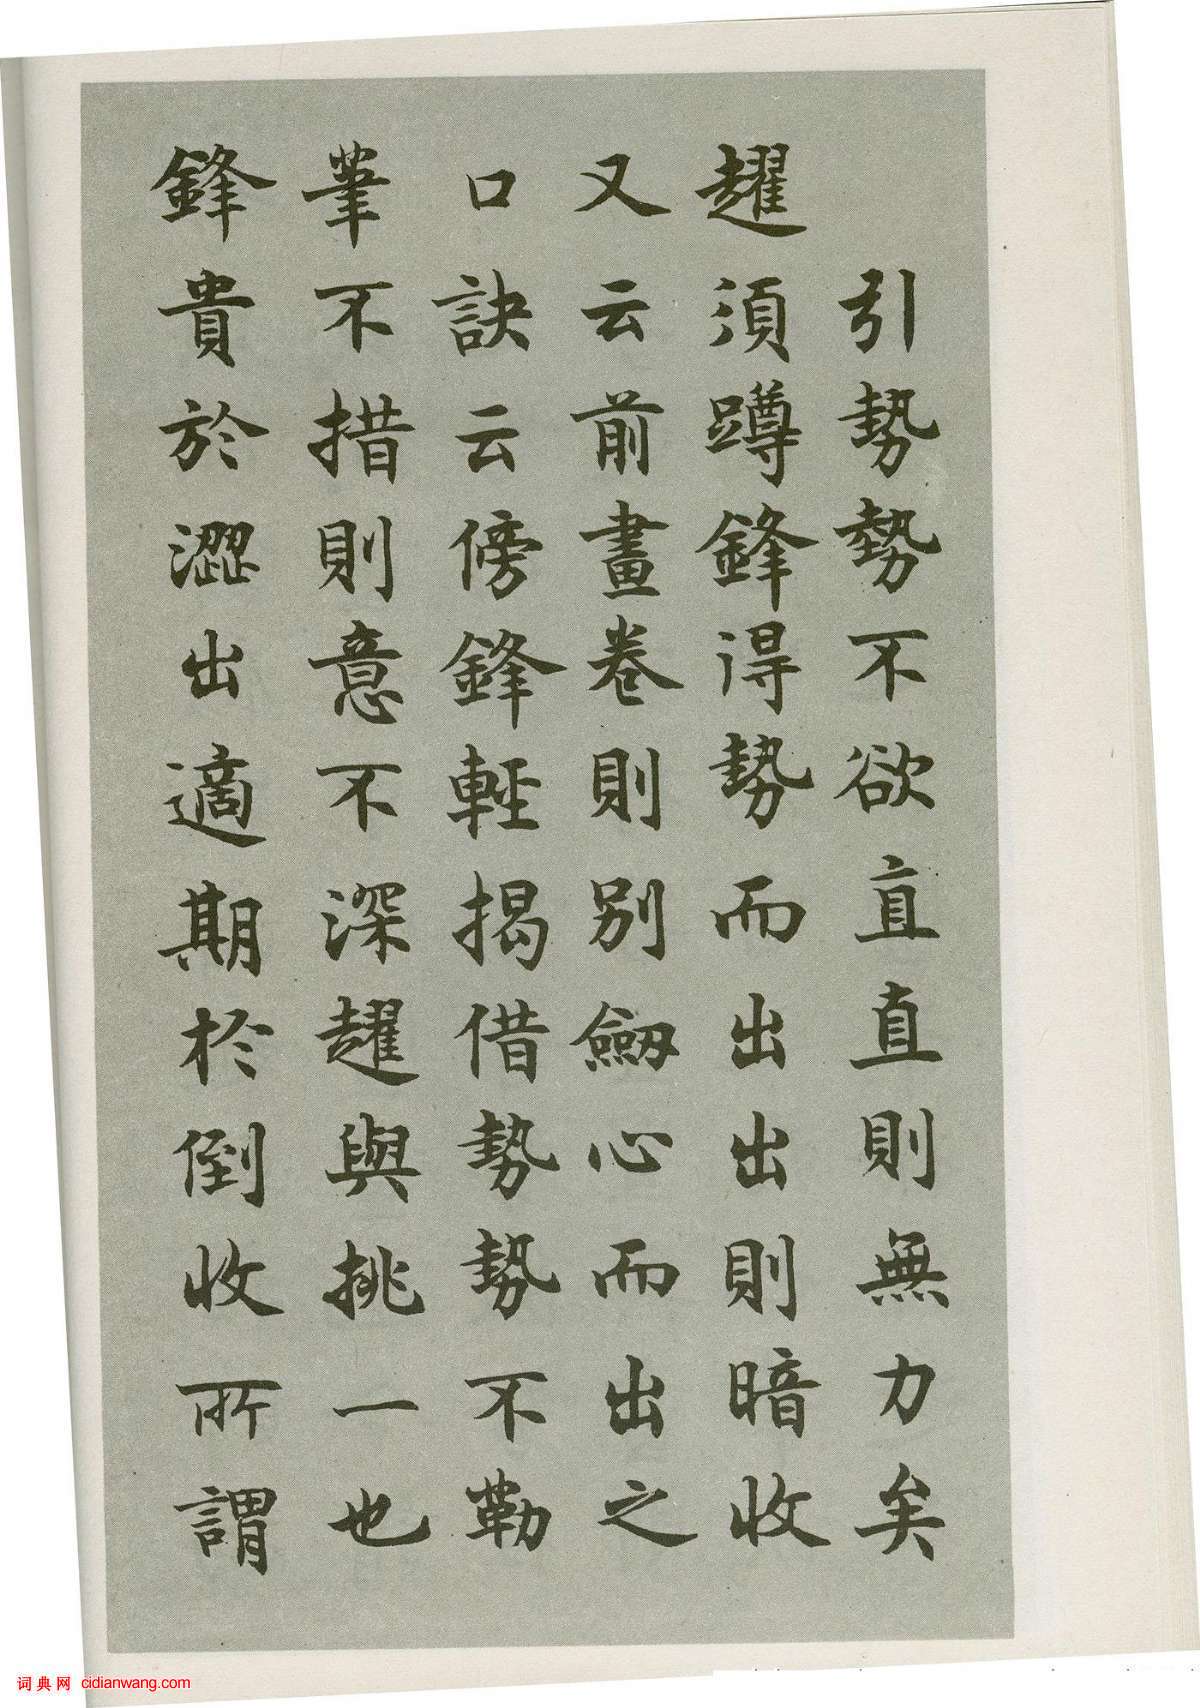 引勢勢不欲直直則無力矣
趯須蹲鋒得勢而出出則暗收
又云前畫卷則別斂心而出之
口訣云傍鋒輕揭借勢勢不勒
筆不措則意不深趯與挑一也
鋒貴於澀出適期於倒收所謂
词典网 cidianwang.com